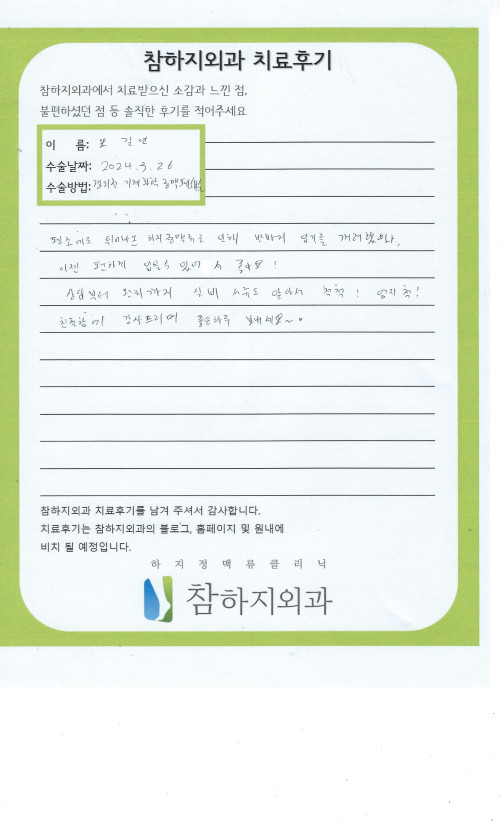 참하지외과 치료후기
참하지외과에서 치료받으신 소감과 느낀 점,
불편하셨던 점 등 솔직한 후기를 적어주세요
이 름: 길연
수술날짜: 2024. 3. 26
수술방법:
평소에도 튀어나온 하지정맥류로 인해 반바지 입기를 꺼려했으나,
이젠 편하게 입을수 있어서 좋아요!
상담부터 완치까지 실비 서류도 알아서 척척! 엄지 척!
친절함에 감사드리며 좋은하루 보내세요~.
참하지외과 치료후기를 남겨 주셔서 감사합니다.
치료후기는 참하지외과의 블로그, 홈페이지 및 원내에
비치 될 예정입니다.
하지정맥류클리닉
참하지외과